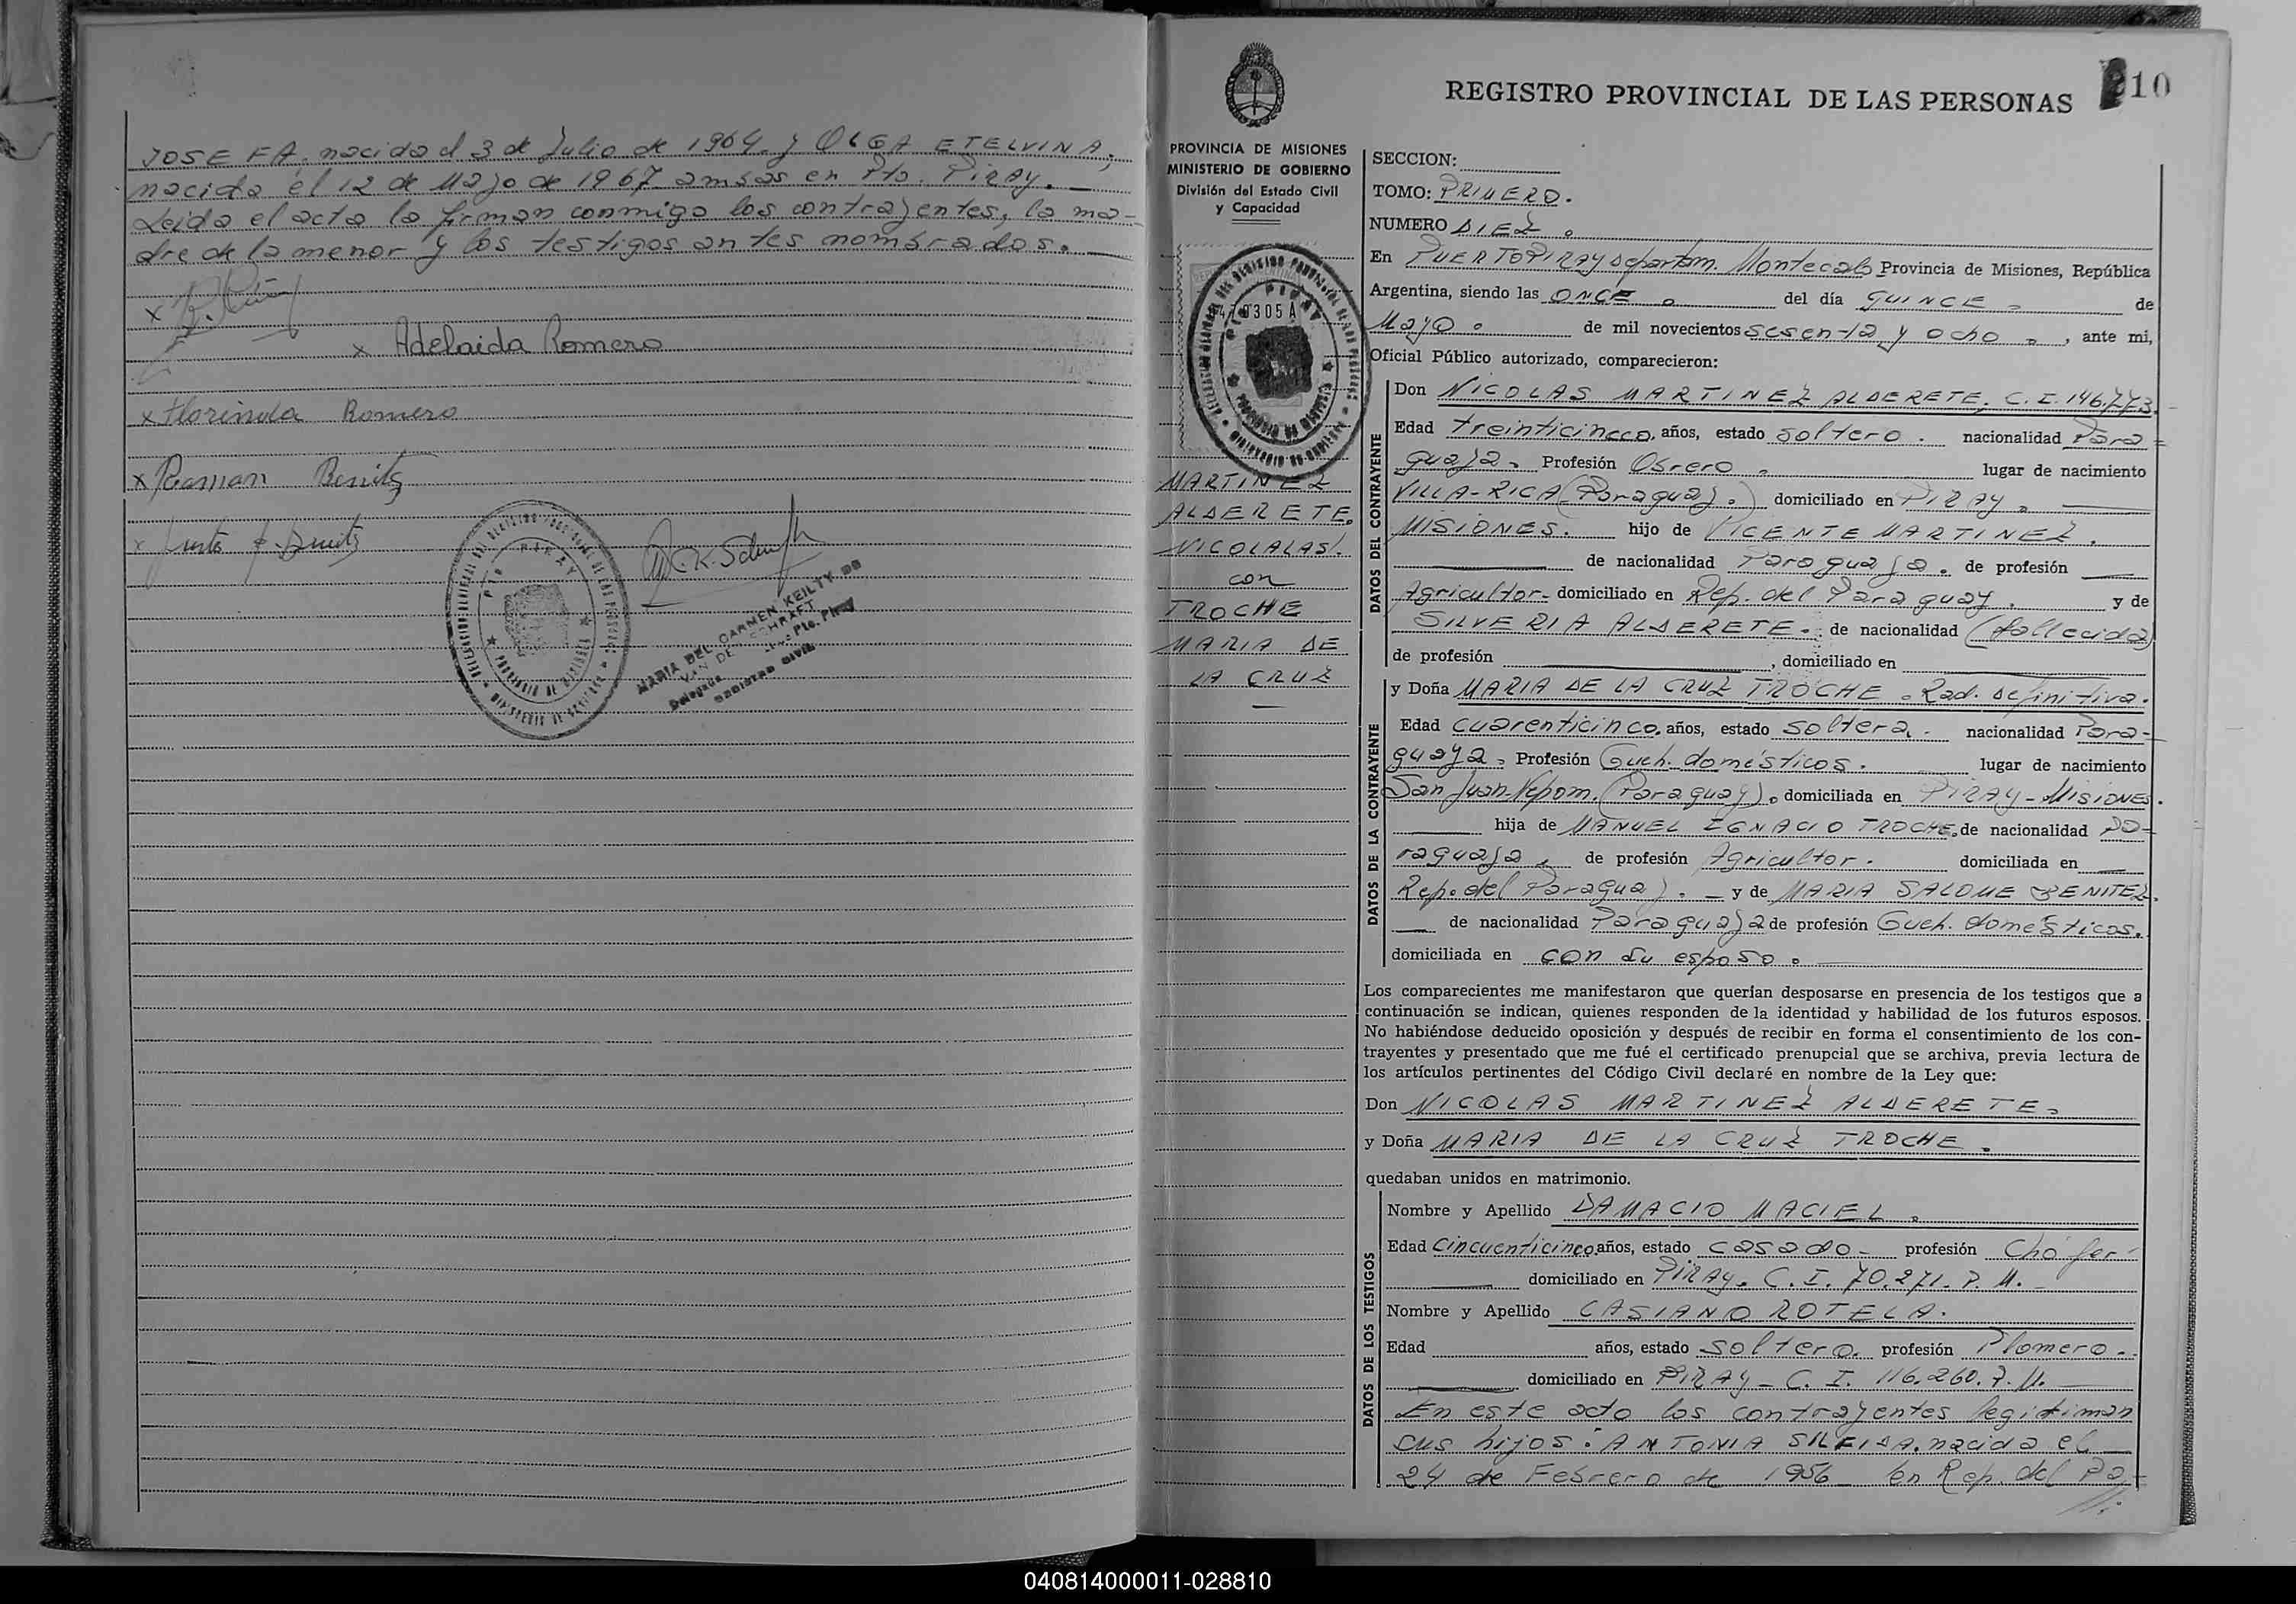 JOSEFA. nacida el 3 de Julio de 1964. y OLGA ETELVINA,
nacida el 12 de Mayo de 1967 ambas en Pto. Piray. —
Leida el acta la firman conmigo los contrayentes, la ma-
dre de la menor y los testigos antes nombrados. —
x
x Adelaida Romero
x Florinda Romero
x Raman Benitz
x
PTO PIRAY
PROVINCIA DE MISIONES
MARIA DEL CARMEN KEILTY DE
VAN DE SCHRAFT
Delegada Pto. Piray
REGISTRO CIVIL
10
REGISTRO PROVINCIAL DE LAS PERSONAS
PROVINCIA DE MISIONES
MINISTERIO DE GOBIERNO
División del Estado Civil
y Capacidad
0305A
PIRAY
MARTINEZ
ALDERETE.
NICOLALAS.
con
TROCHE
MARIA DE
LA CRUZ
—
SECCION:
TOMO: PRIMERO.
NUMERO DIEZ.
En PUERTO PIRAY Departam. Montecarlo Provincia de Misiones, República
Argentina, siendo las ONCE. del día QUINCE. de
Mayo. de mil novecientos sesenta y ocho., ante mi,
Oficial Público autorizado, comparecieron:
DATOS DEL CONTRAYENTE
Don NICOLAS MARTINEZ ALDERETE. C.I. 146.773.-
Edad treinticincco. años, estado soltero. nacionalidad Para=
guaya. Profesión Obrero. lugar de nacimiento
VILLA-RICA (Paraguay.) domiciliado en PIRAY. —
MISIONES. hijo de VICENTE MARTINEZ.
— de nacionalidad Paraguaya. de profesión —
Agricultor- domiciliado en Rep. del Paraguay. y de
SILVERIA ALDERETE. de nacionalidad (fallecida)
de profesión —, domiciliado en —
DATOS DE LA CONTRAYENTE
y Doña MARIA DE LA CRUZ TROCHE. Rad. Definitiva.
Edad cuarenticinco. años, estado soltera. nacionalidad Para-
guaya. Profesión Queh. domésticos. lugar de nacimiento
San Juan Nepom. (Paraguay). domiciliada en PIRAY-MISIONES.
— hija de MANUEL IGNACIO TROCHE, de nacionalidad Pa-
raguaya, de profesión Agricultor. domiciliada en —
Rep. del Paraguay. — y de MARIA SALOME BENITEZ.
— de nacionalidad Paraguaya de profesión Queh. domésticos.
domiciliada en con su esposo. —
Los comparecientes me manifestaron que querían desposarse en presencia de los testigos que a
continuación se indican, quienes responden de la identidad y habilidad de los futuros esposos.
No habiéndose deducido oposición y después de recibir en forma el consentimiento de los con-
trayentes y presentado que me fué el certificado prenupcial que se archiva, previa lectura de
los artículos pertinentes del Código Civil declaré en nombre de la Ley que:
Don NICOLAS MARTINEZ ALDERETE.
y Doña MARIA DE LA CRUZ TROCHE.
quedaban unidos en matrimonio.
DATOS DE LOS TESTIGOS
Nombre y Apellido DAMACIO MACIEL.
Edad Cincuenticinco. años, estado casado- profesión Chofer-
— domiciliado en PIRAY. C.I. 70.271. P.M. —
Nombre y Apellido CASIANO ROTELA.
Edad años, estado soltero. profesión Plomero.-
— domiciliado en PIRAY- C.I. 116.260. P.M. —
En este acto los contrayentes legitiman
sus hijos: ANTONIA SILFIDA. nacida el —
24 de Febrero de 1956 en Rep. del Pa-
//.
040814000011-028810